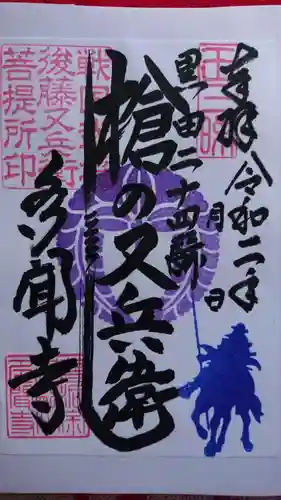 奉拝
令和二年
月
日
黒田二十四騎
槍の又兵衛
多聞寺
戦国武将
後藤又兵衛
菩提所印